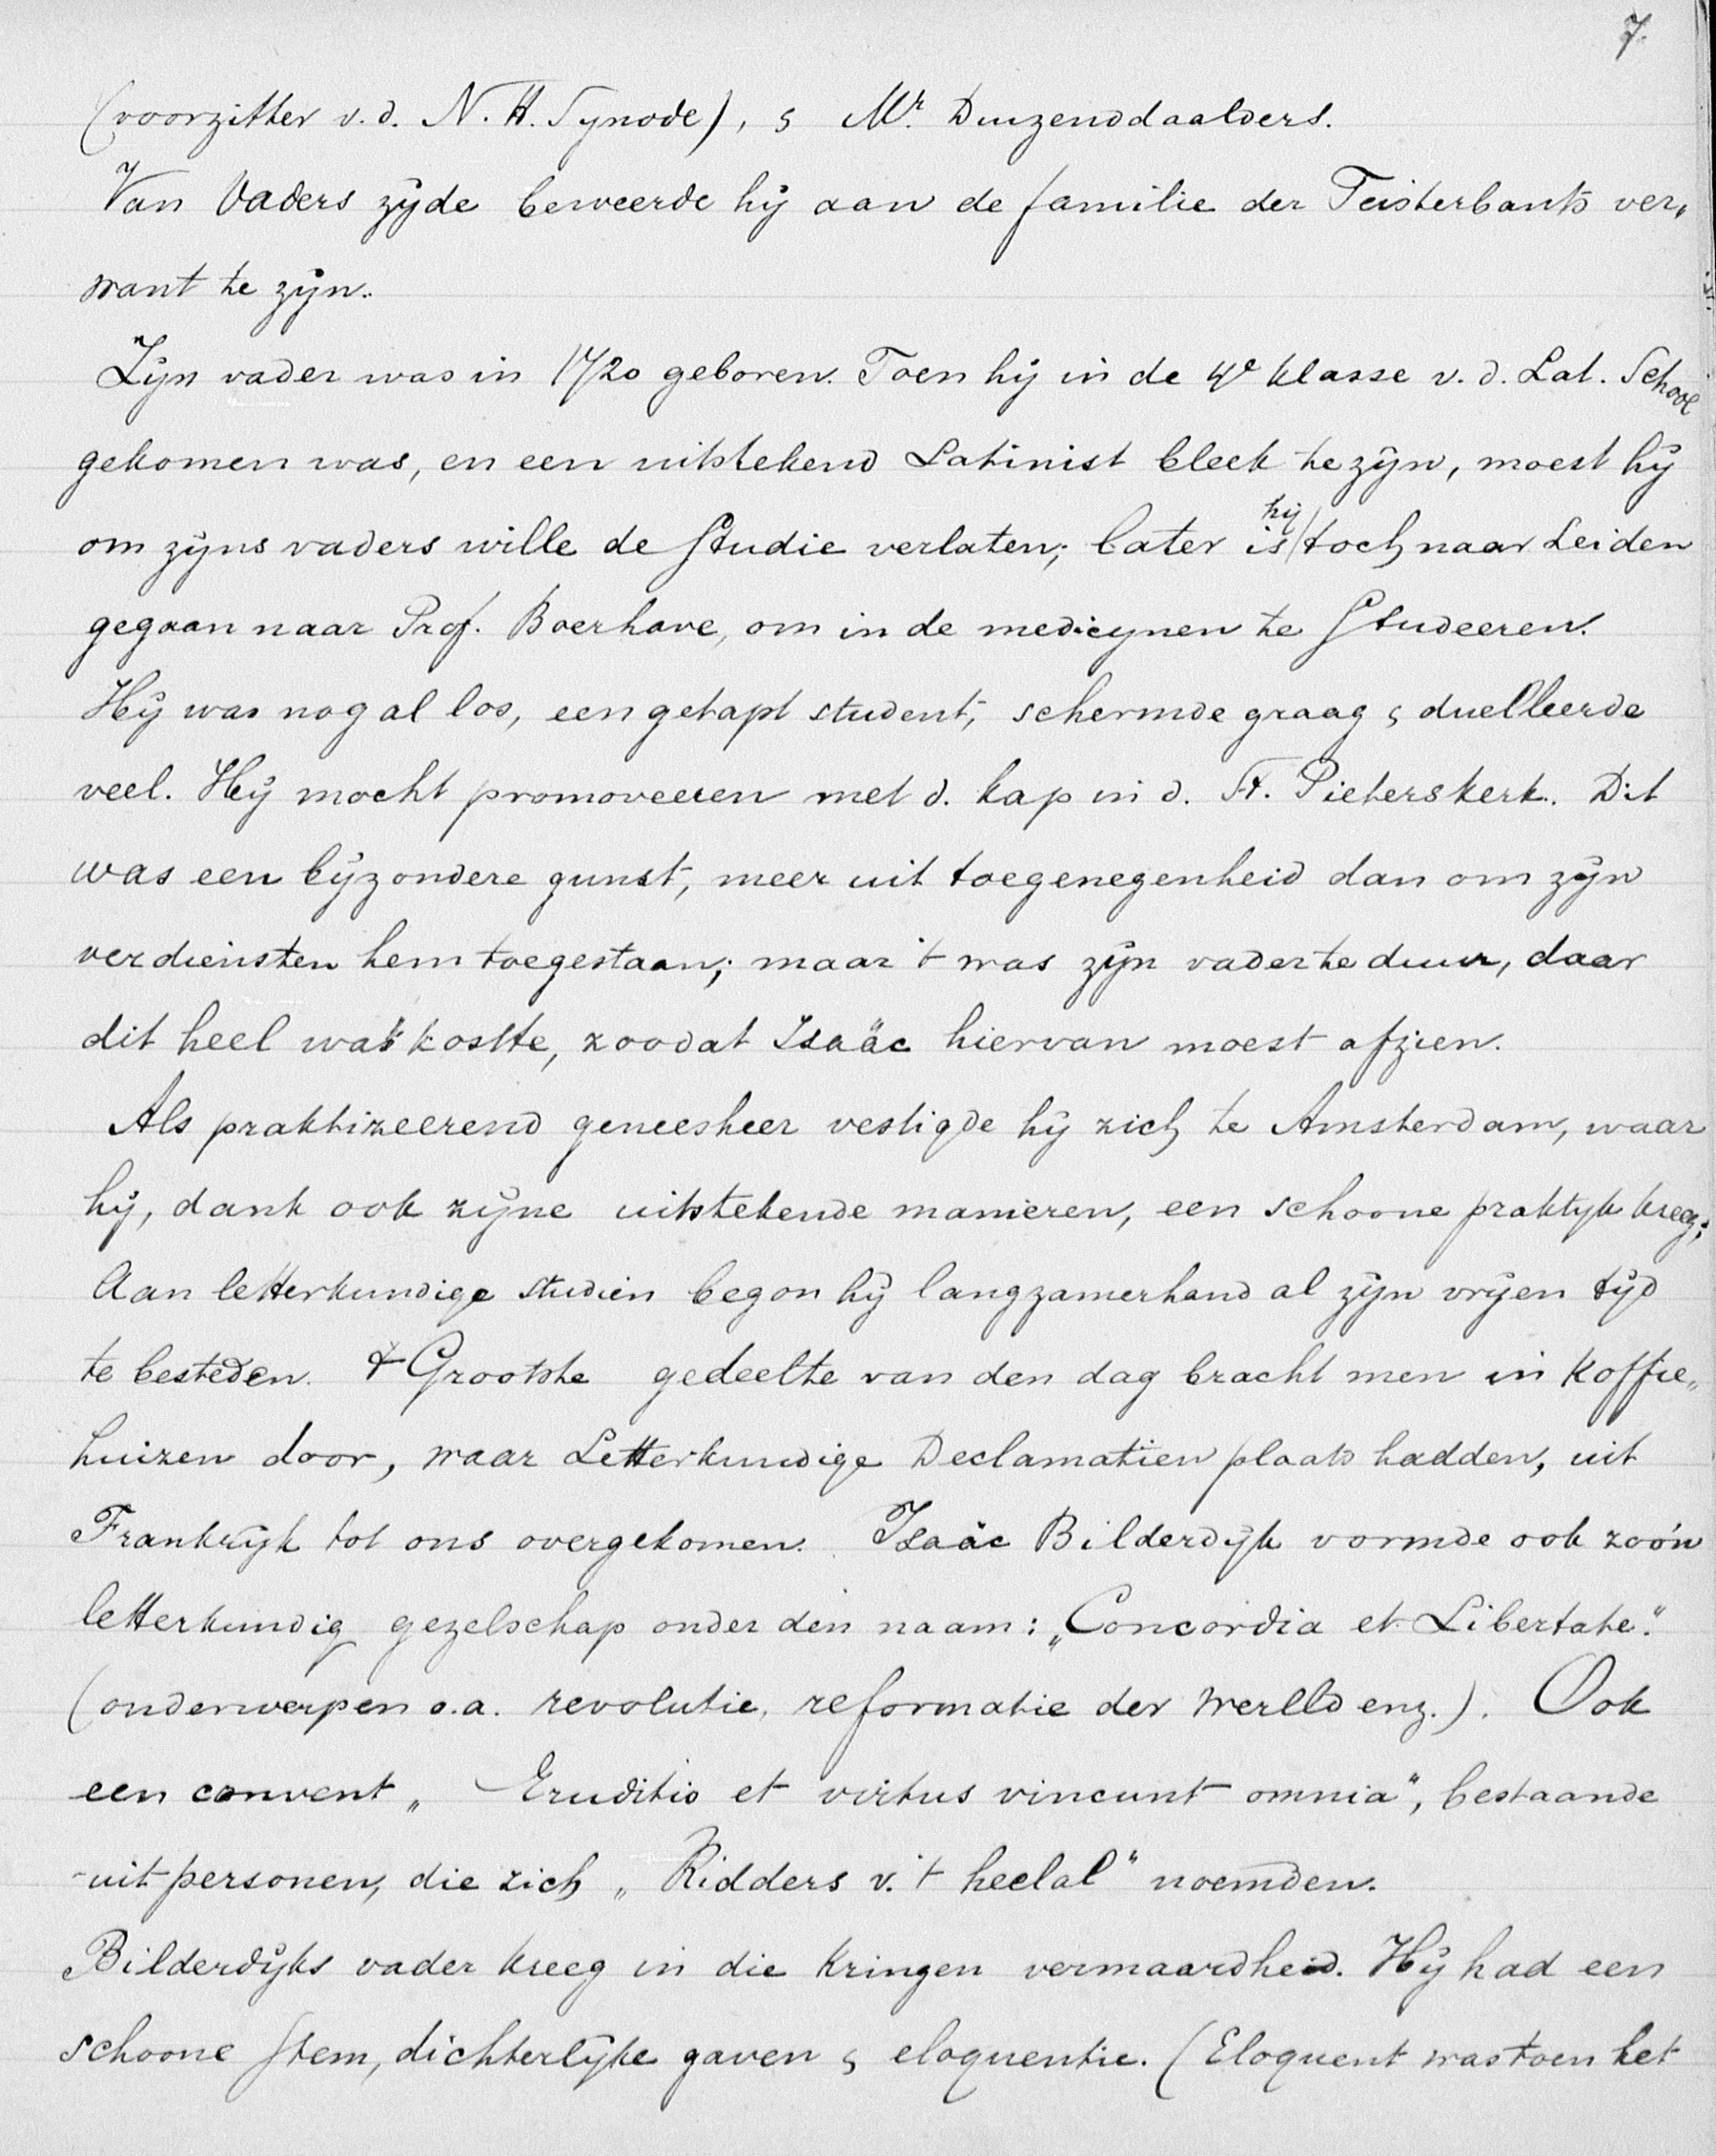 7.
(voorzitter v.d. N.H. Synode), & Mr. Duizenddaalders.
Van Vaders zijde beweerde hij aan de familie der Teisterbants ver-
want te zijn.
Zijn vader was in 1720 geboren. Toen hij in de 4e klasse v.d. Lat. School
gekomen was, en een uitstekend Latinist bleek te zijn, moest hij
om zijns vaders wille de studie verlaten; later is hij toch naar Leiden
gegaan naar Prof. Boerhave, om in de medicynen te studeeren.
Hij was nog al los, een getapt student, schermde graag & duelleerde
veel. Hij mocht promoveeren met d. kap in d. St. Pieterskerk. Dit
was een bijzondere gunst, meer uit toegenegenheid dan om zijn
verdiensten hem toegestaan; maar 't was zijn vader te duur, daar
dit heel wat kostte, zoodat Isaäc hiervan moest afzien.
Als praktizeerend geneesheer vestigde hij zich te Amsterdam, waar
hij, dank ook zijne uitstekende manieren, een schoone praktijk kreeg;
Aan letterkundige studiën begon hij langzamerhand al zijn vrijen tijd
te besteden. 't Grootste gedeelte van den dag bracht men in koffie„
huizen door, waar Letterkundige Declamatien plaats hadden, uit
Frankrijk tot ons overgekomen. Isaäc Bilderdijk vormde ook zoo'n
letterkundig gezelschap onder den naam: „Concordia et Libertate".
(onderwerpen o.a. revolutie, reformatie der wereld enz.). Ook
een convent „Eruditio et virtus vincunt omnia", bestaande
uit personen, die zich „Ridders v. 't heelal" noemden.
Bilderdijks vader kreeg in die kringen vermaardheid. Hij had een
schoone stem, dichterlijke gaven & eloquentie. (Eloquent was toen het